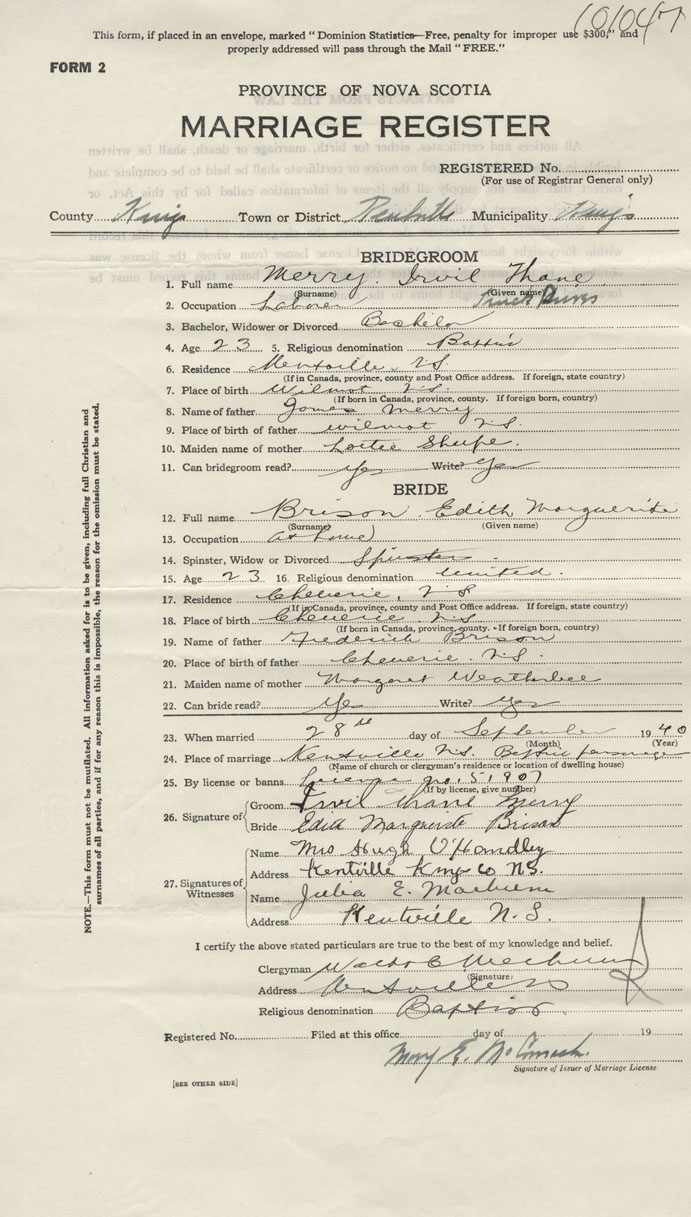 101047
This form, if placed in an envelope, marked "Dominion Statistics—Free, penalty for improper use $300," and
properly addressed will pass through the Mail "FREE."
FORM 2
PROVINCE OF NOVA SCOTIA
MARRIAGE REGISTER
REGISTERED No.
(For use of Registrar General only)
County Kings Town or District Kentville Municipality Kings
BRIDEGROOM
1. Full name Merry. Irvil Thane
(Surname) (Given name)
2. Occupation Laborer
3. Bachelor, Widower or Divorced Bachelor
4. Age 23 5. Religious denomination Baptist
6. Residence Kentville N S
(If in Canada, province, county and Post Office address. If foreign, state country)
7. Place of birth Wilmot N.S.
(If born in Canada, province, county. If foreign born, country)
8. Name of father James Merry
9. Place of birth of father Wilmot N.S.
10. Maiden name of mother Lottie Sharpe.
11. Can bridegroom read? yes Write? yes
BRIDE
12. Full name Brison. Edith Marguerite
(Surname) (Given name)
13. Occupation at home
14. Spinster, Widow or Divorced Spinster.
15. Age 23 16. Religious denomination United.
17. Residence Cheverie, N S
(If in Canada, province, county and Post Office address. If foreign, state country)
18. Place of birth Cheverie N.S.
(If born in Canada, province, county. If foreign born, country)
19. Name of father Frederick Brison
20. Place of birth of father Cheverie. N.S.
21. Maiden name of mother Margaret Weatherbee
22. Can bride read? Yes Write? Yes
23. When married 28th day of September 1940
(Month) (Year)
24. Place of marriage Kentville N.S. Baptist parsonage
(Name of church or clergyman's residence or location of dwelling house)
25. By license or banns License no. 51907
(If by license, give number)
26. Signature of Groom Irvil Thane Merry
Bride Edith Marguerite Brison
27. Signatures of Witnesses
Name Mrs Hugh O'Handley
Address Kentville Kings Co NS.
Name Julia E. Machum
Address Kentville N.S.
I certify the above stated particulars are true to the best of my knowledge and belief.
Clergyman Waldo C Machum
(Signature)
Address Kentville NS
Religious denomination Baptist.
Registered No. Filed at this office day of 19
Mary E.
Signature of Issuer of Marriage License.
[SEE OTHER SIDE]
NOTE.—This form must not be mutilated. All information asked for is to be given, including full Christian and
surnames of all parties, and if for any reason this is impossible, the reason for the omission must be stated.